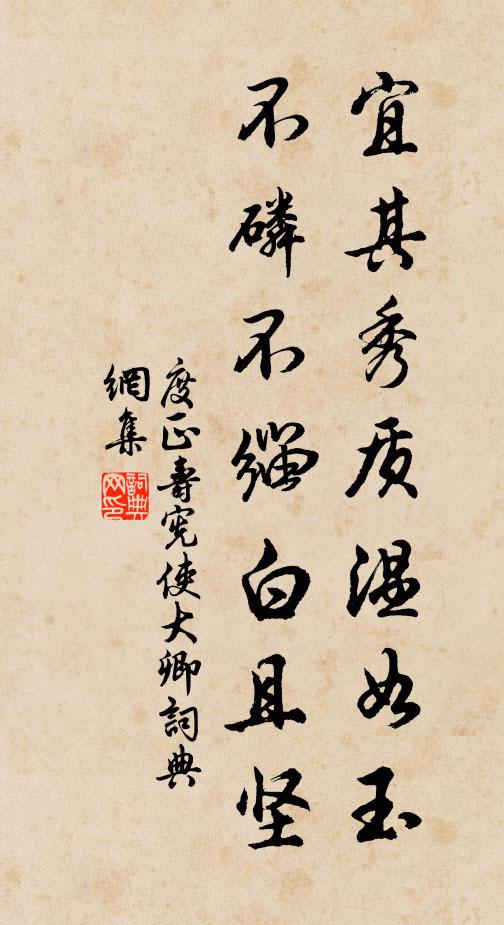 宜其秀质温如玉
不磷不缁白且坚
度正寿宪使大卿詞典
網集
詞典网印